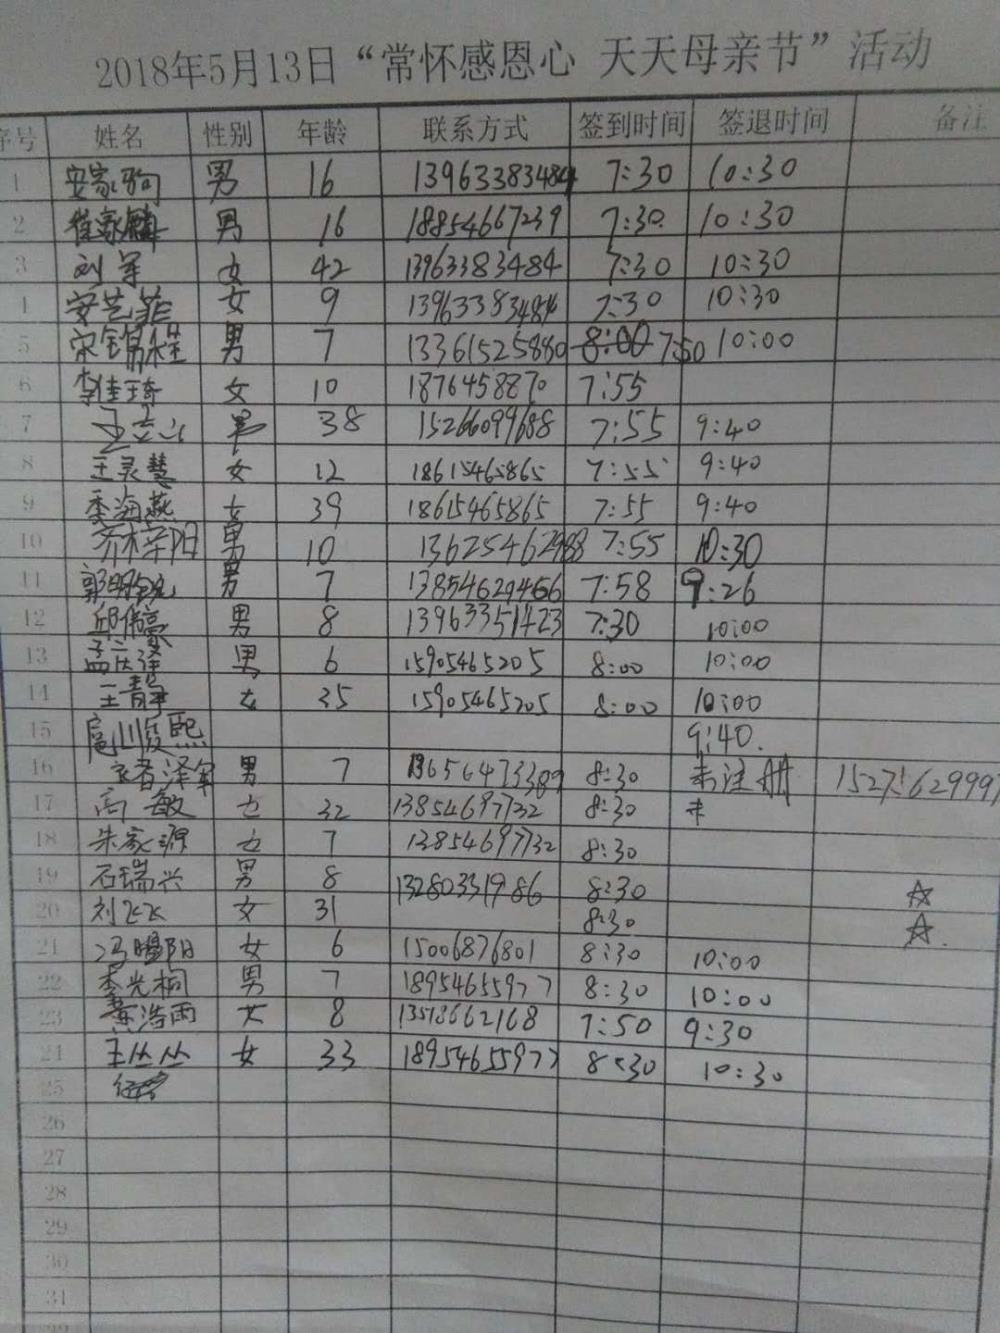 2018年5月13日“常怀感恩心 天天母亲节”活动
序号 姓名 性别 年龄 联系方式 签到时间 签退时间 备注
1 安家驹 男 16 13963383484 7:30 10:30
2 崔家麟 男 16 18854667239 7:30 10:30
3 刘军 女 42 13963383484 7:30 10:30
4 安艺菲 女 9 13963383484 7:30 10:30
5 宋锦程 男 7 13361525880 8:00 7:50 10:00
6 李佳琦 女 10 1876458870 7:55
7 男 38 15266099688 7:55 9:40
8 王灵慧 女 12 18615465865 7:55 9:40
9 季海燕 女 39 18615465865 7:55 9:40
10 乔梓阳 男 10 13625462988 7:55 10:30
11 郭明锐 男 7 13854629466 7:58 9:26
12 邱伟豪 男 8 13963351423 7:30 10:00
13 孟庆泽 男 6 15905465205 8:00 10:00
14 王静 女 35 15905465205 8:00 10:00
15 扈川俊熙 9:40.
16 男 7 13656473389 8:30 未注册 15275629997
17 高敏 女 32 13854697732 8:30 未
18 朱家源 女 7 13854697732 8:30
19 石瑞兴 男 8 13280331986 8:30 ☆
20 刘飞飞 女 31 8:30 ☆
21 冯曙阳 女 6 15006876801 8:30 10:00
22 李光桐 男 7 18954655977 8:30 10:00
23 浩雨 女 8 13518662168 7:50 9:30
24 王丛丛 女 33 18954655977 8:30 10:30
25
26
27
28
29
30
31